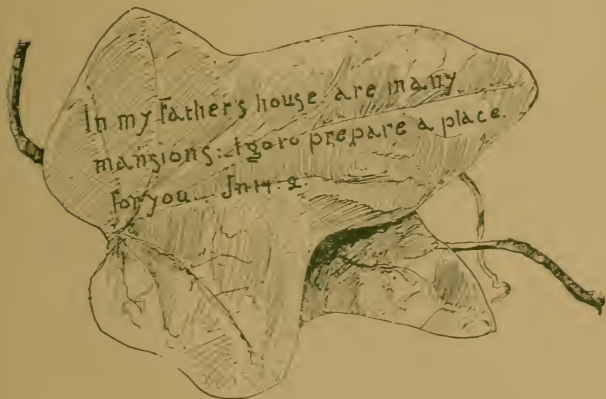 In my Father's house are many
mansions: I go to prepare a place
for you. Jn 14: 2.